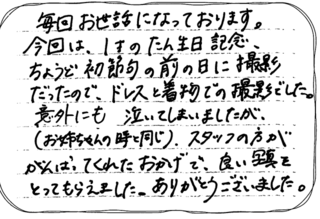 毎回お世話になっております。
今回は、1才のたん生日記念、
ちょうど初節句の前の日に撮影
だったので、ドレスと着物での撮影でした。
意外にも 泣いてしまいましたが、
(お姉ちゃんの時と同じ)、スタッフの方が
がんばってくれたおかげで、良い写真を
とってもらえました。ありがとうございました。